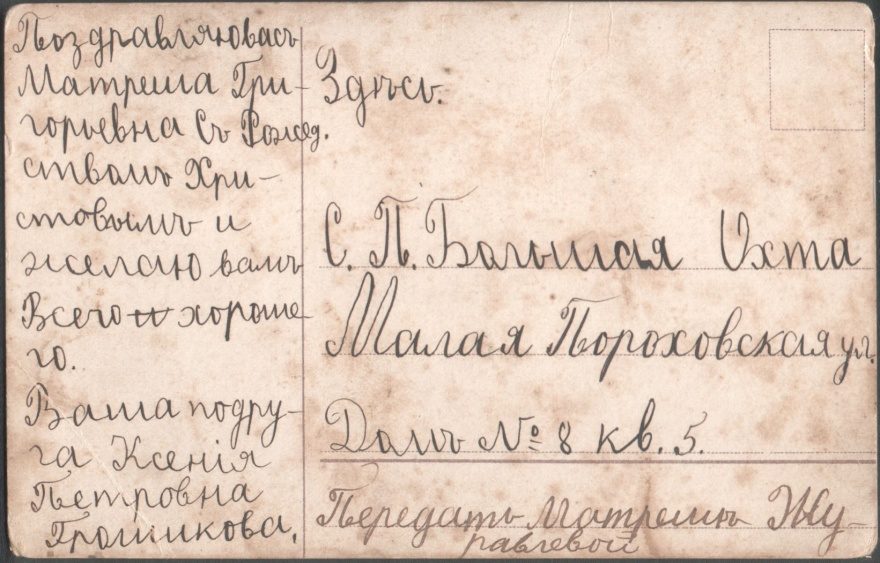 Поздравляювасъ
Матреша Гри-
горьевна Съ Рожед.
ствамъ Хри-
стовымъ и
желаю вамъ
Всего и хороше-
го.
Ваша подру-
га Ксенія
Петровна
Грошикова.
Здѣсь.
С. П. Большая Охта
Малая Пороховская ул.
Домъ № 8 кв. 5.
Передать Матрешѣ Жу-
равлевой